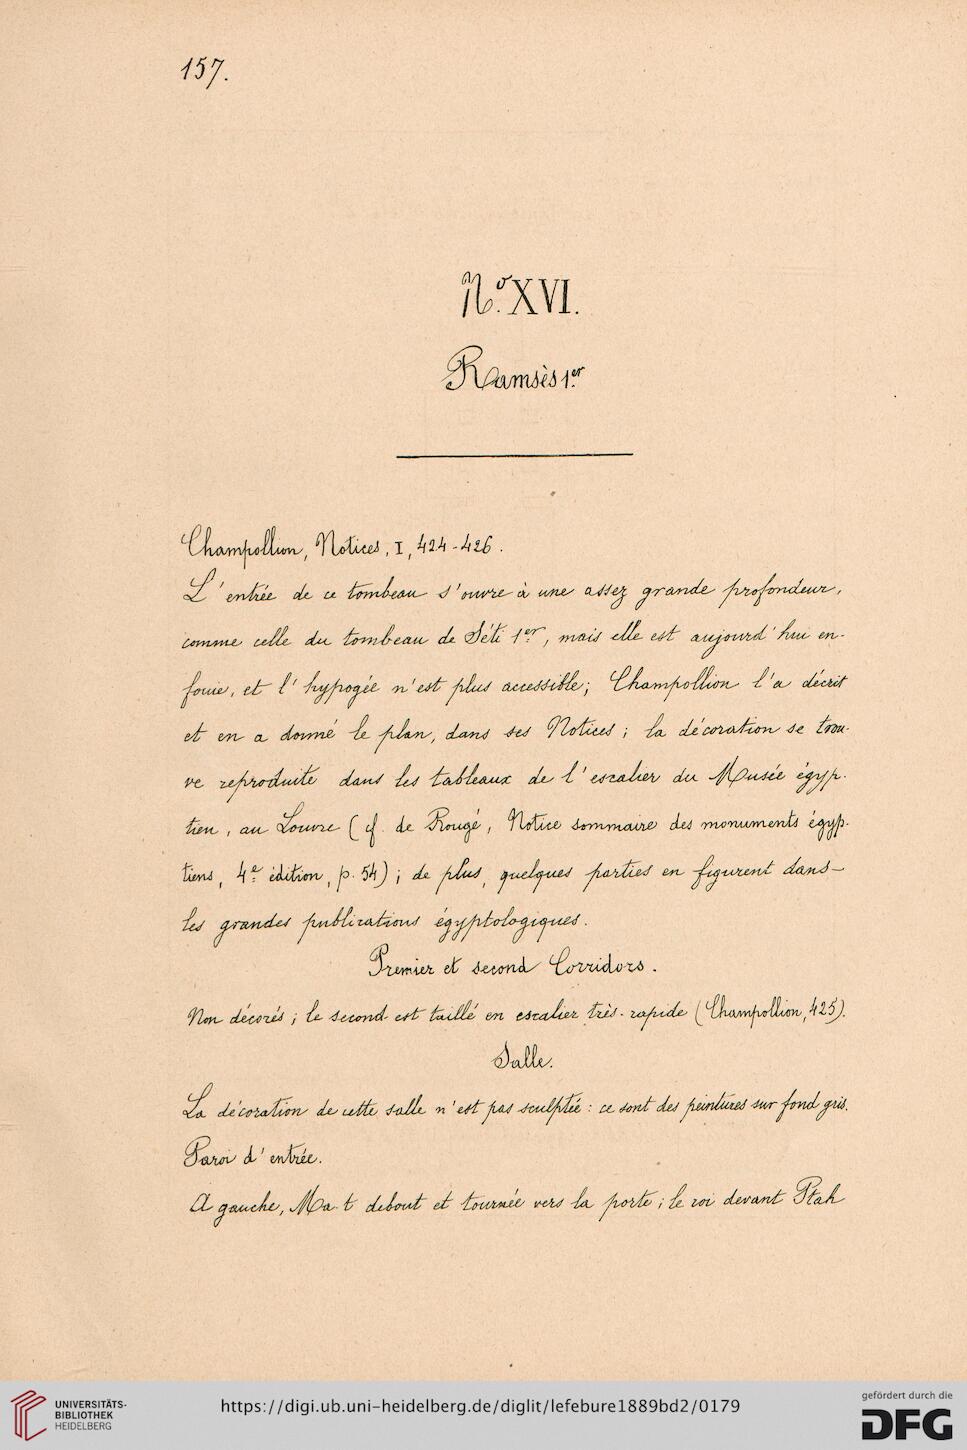 157.
N.o XVI.
Ramsès 1.er
Champollion, Notices, I, 424-426.
L'entrée de ce tombeau s'ouvre à une assez grande profondeur,
comme celle du tombeau de Séti 1er, mais elle est aujourd'hui en-
fouie, et l'hypogée n'est plus accessible; Champollion l'a décrit
et en a donné le plan, dans ses Notices; la décoration se trou-
ve reproduite dans les tableaux de l'escalier du Musée égyp-
tien, au Louvre (cf. de Rougé, Notice sommaire des monuments égyp-
tiens, 4e édition, p. 54); de plus, quelques parties en figurent dans
les grandes publications égyptologiques.
Premier et second Corridors.
Non décorés; le second est taillé en escalier très-rapide (Champollion, 425).
Salle.
La décoration de cette salle n'est pas sculptée: ce sont des peintures sur fond gris.
Paroi d'entrée.
A gauche, Ma-t debout et tournée vers la porte; le roi devant Ptah
UNIVERSITÄTS-
BIBLIOTHEK
HEIDELBERG
https://digi.ub.uni-heidelberg.de/diglit/lefebure1889bd2/0179
gefördert durch die
DFG